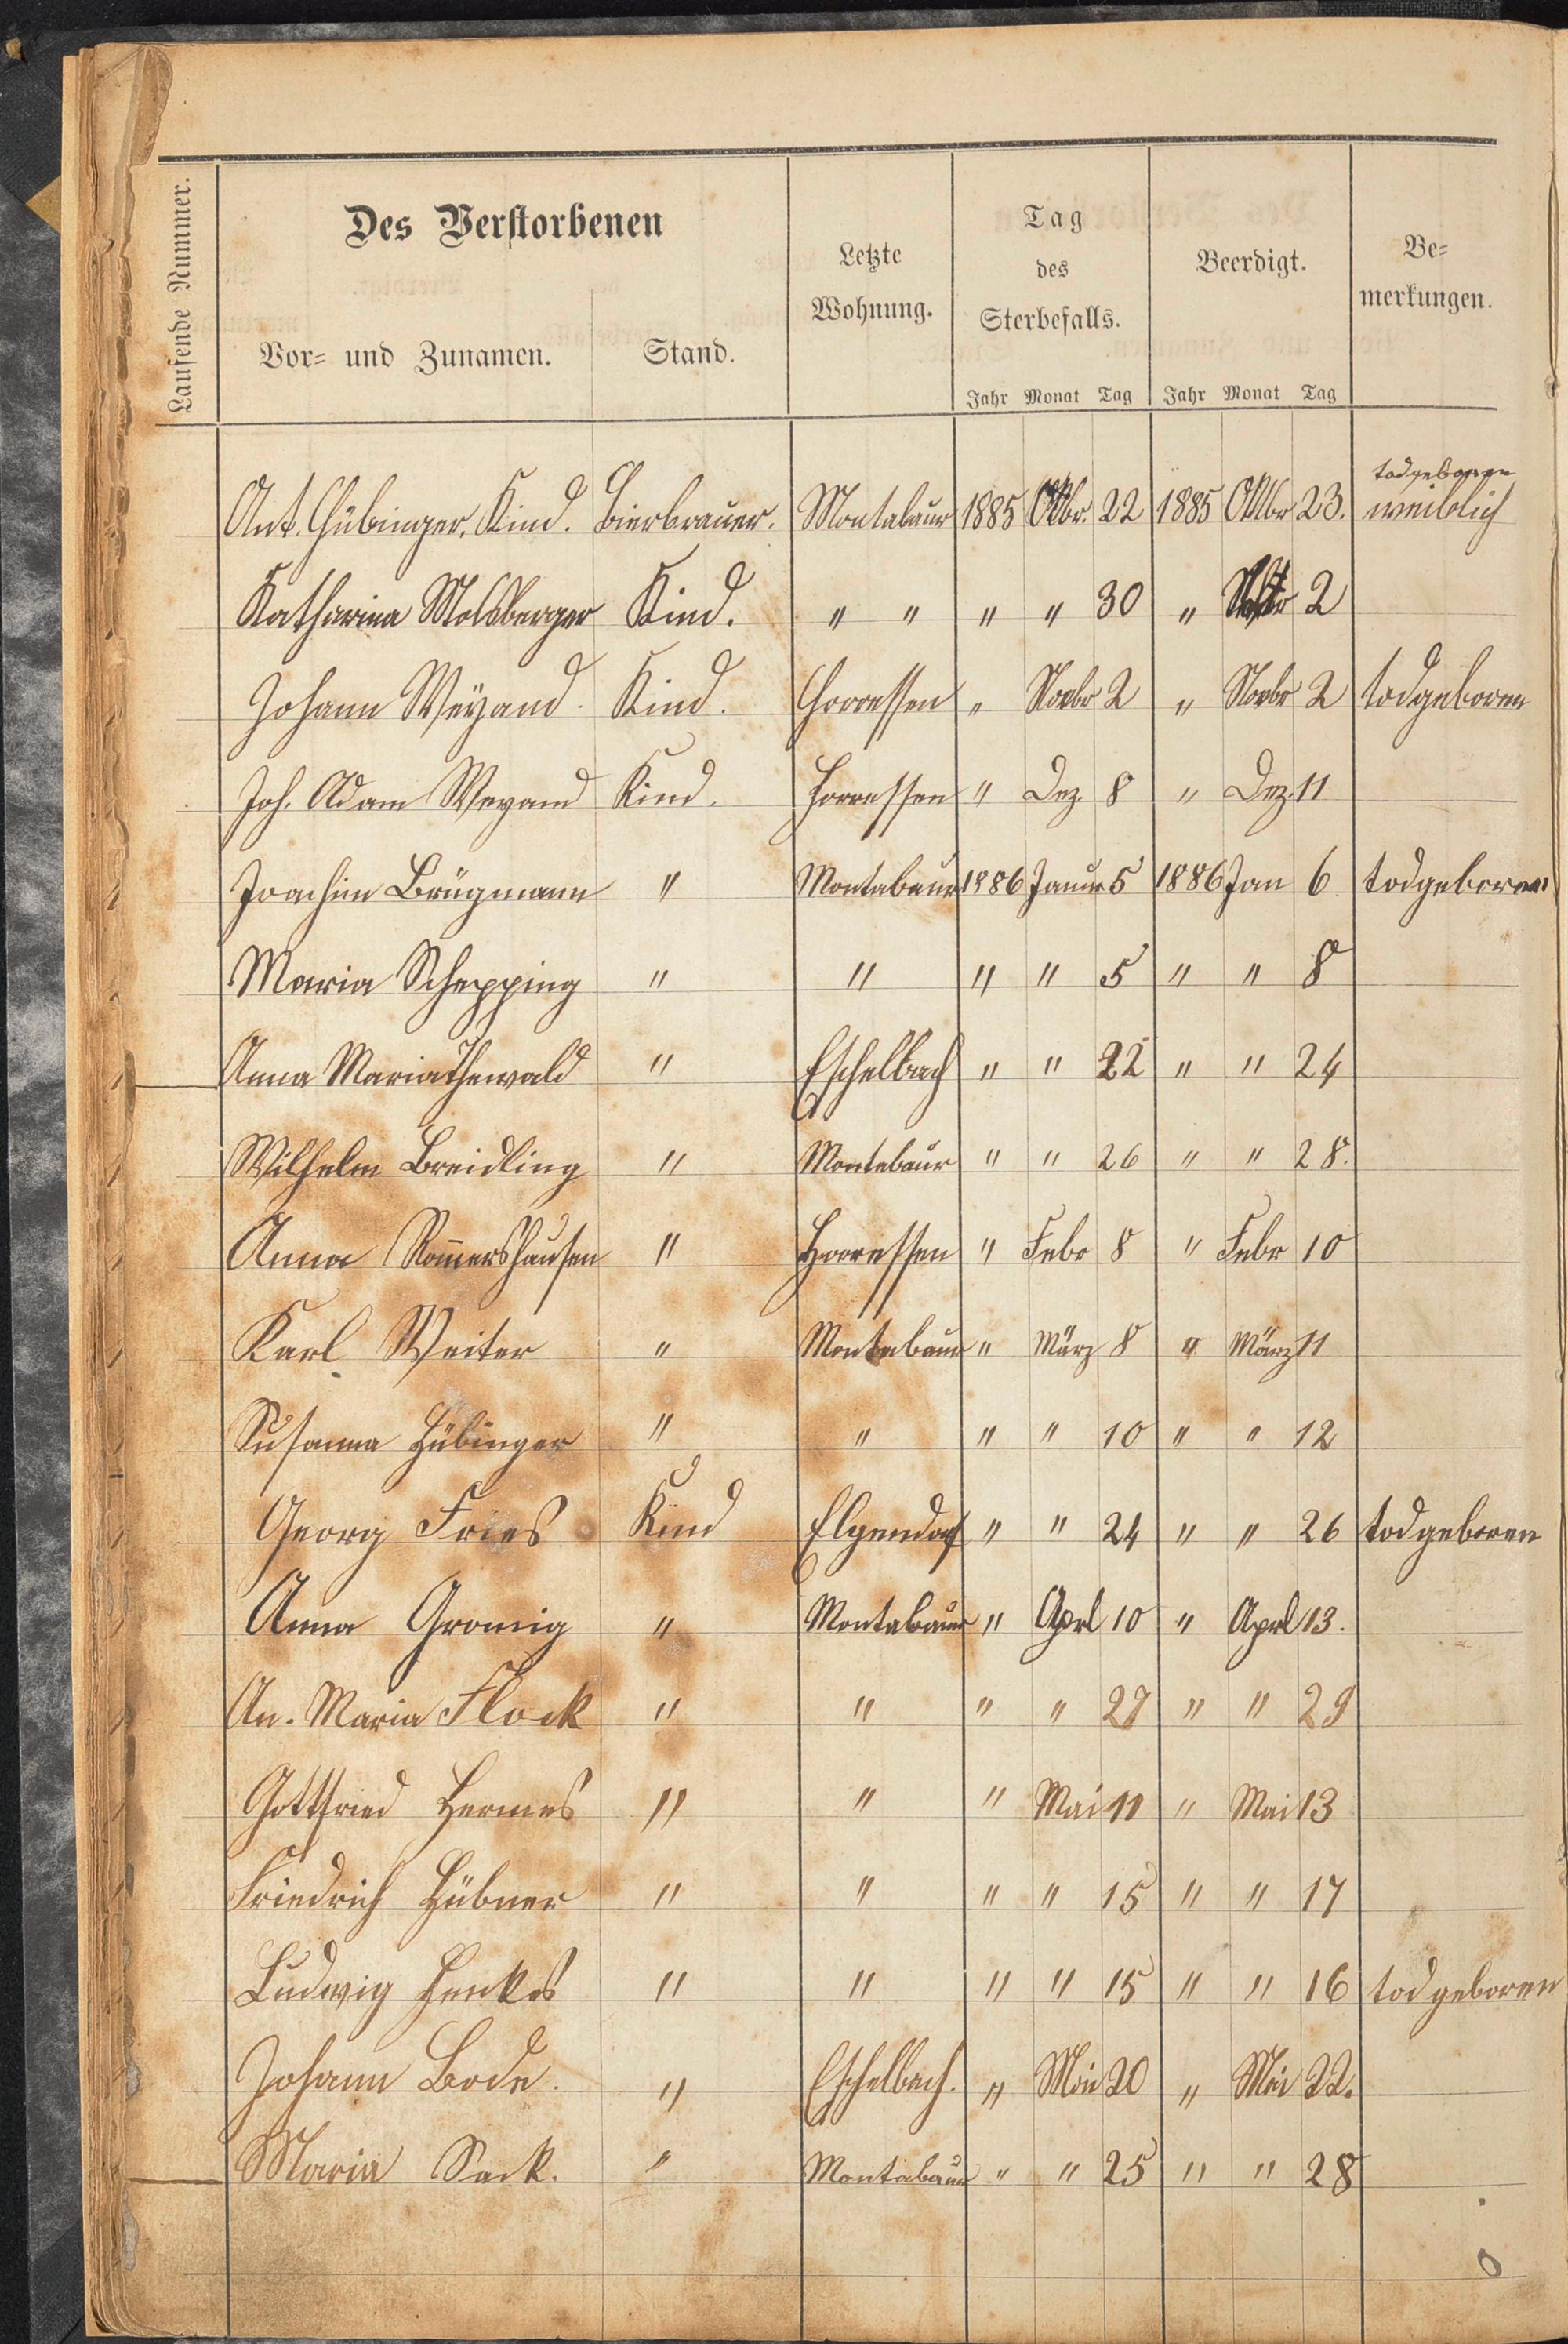 Laufende Nummer.
Des Verstorbenen
Vor= und Zunamen.
Stand.
Letzte
Wohnung.
Tag
des
Sterbefalls.
Beerdigt.
Be=
merkungen.
Jahr Monat Tag Jahr Monat Tag
todgeboren
Ant. Hübinger, Kind. Bierbrauer. Montabaur 1885 Oktbr. 22 1885 Oktbr 23. weiblich
Katharina Molsberger Kind. " " " " 30 " 2
Johann Weÿand. Kind. Horressen " Novbr 2 " Novbr 2 todgeboren
Joh. Adam Weyand Kind. Horressen " Dez. 8 " Dez. 11
Joachim Brügmann " Montabaur 1886 Januar 5 1886 Jan 6 todgeboren
Maria Schepping " " " " 5 " " 8
Anna Maria Thewald " Eschelbach " " 22 " " 24
Wilhelm Breidling " Montabaur " " 26 " " 28.
Anna Rom̄ershausen " Horressen " Febr 8 " Febr 10
Karl Weiter " Montabaur " März 8 " März 11
Susanna Hübinger " " " " 10 " " 12
Georg Fries Kind Elgendorf " " 24 " " 26 todgeboren
Anna Gromig " Montabaur " Aprl 10 " Aprl 13.
An. Maria Flock " " " " " " 29
Gottfried Hermes " " " Mai 11 " Mai 13
Friedrich Hübner " " " " 15 " " 17
Ludwig Henkes " " " " 15 " " 16 todgeboren
Johann Bode. " Eschelbach. " Mai 20 " Mai 22.
Maria Sack. " Montabaur " " 25 " " 28